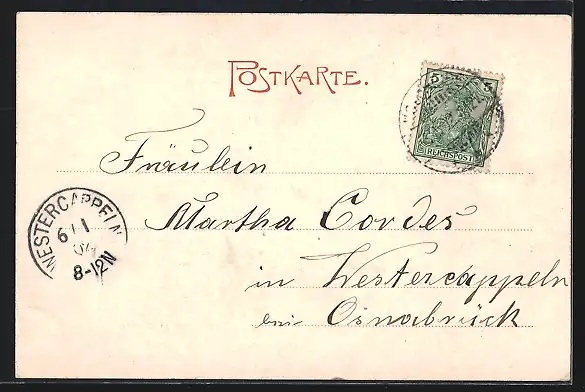 POSTKARTE.
5 5
REICHSPOST
Fräulein
Martha Cordes
in Westercappeln
bei Osnabrück
WESTERCAPPELN
6/1
04
8-12N